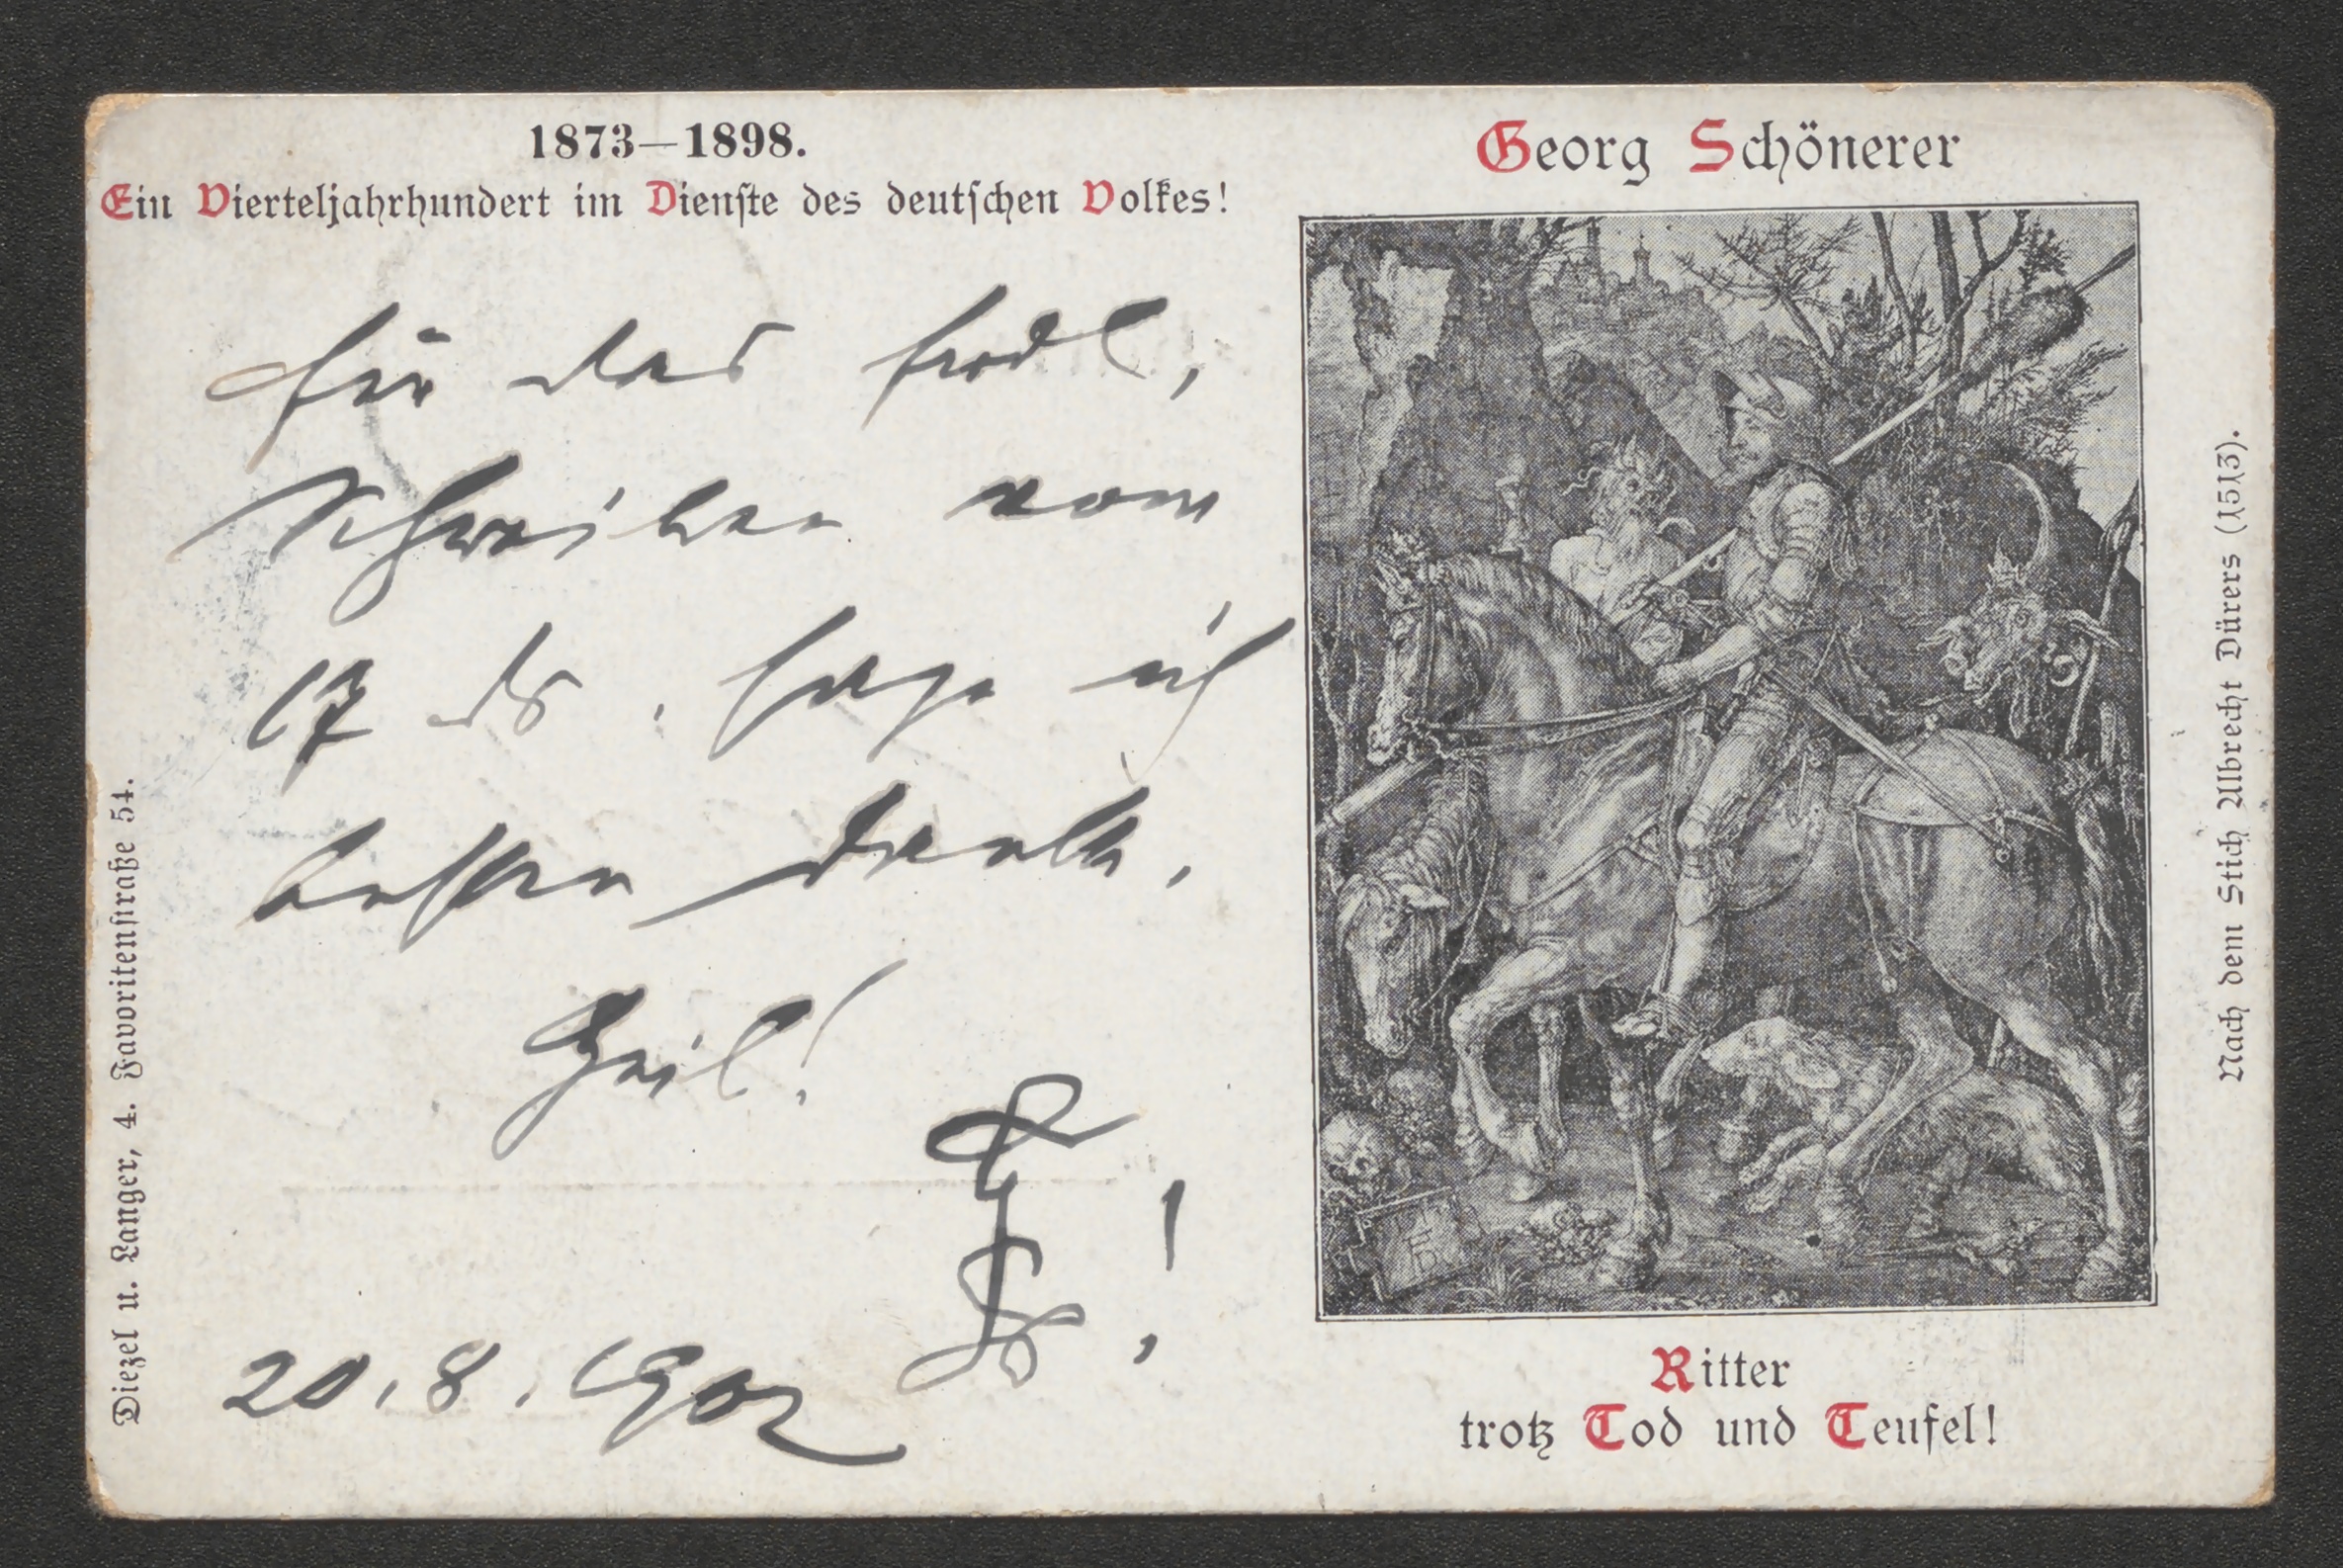 1873—1898.
Ein Vierteljahrhundert im Dienste des deutschen Volkes!
Georg Schönerer
für das frdl,
Schreiben vom
17 ds. sage ich
besten Dank,
Heil!
20.8.1902
Ritter
trotz Tod und Teufel!
Diezel u. Langer, 4. Favoritenstraße 54.
Nach dem Stich Albrecht Dürers (1513).